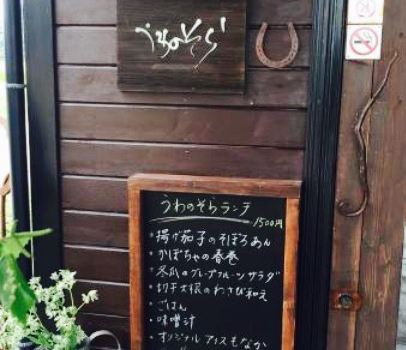 うわのそら
うわのそらランチ
1500円
・揚げ茄子のそぼろあん
・かぼちゃの春巻
・冬瓜のグレープフルーツサラダ
・切干大根のわさび和え
・ごはん
・味噌汁
・オリジナルアイスもなか